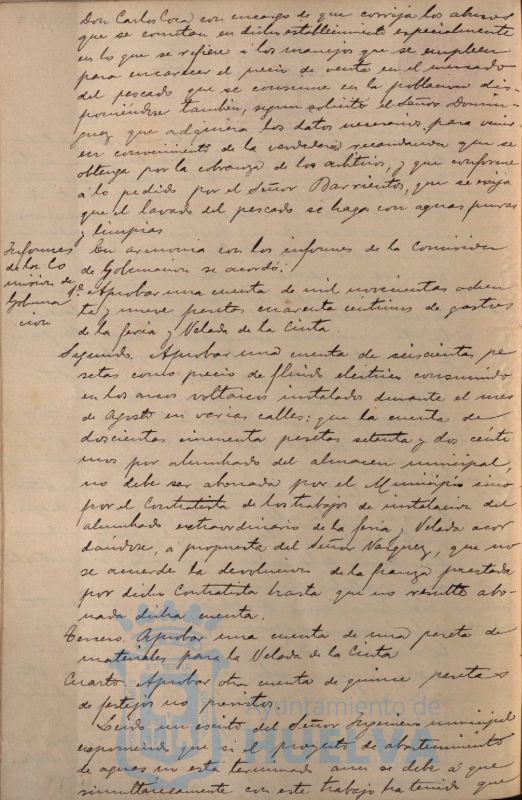 Don Carlos Coca con encargo de que corrija los abusos
que se cometan en dicho establecimiento especialmente
en lo que se refiere á los manejos que se empleen
para encarecer el precio de venta en el mercado
del pescado que se consume en la poblacion dis-
poniéndose tambien, segun solicitó el Señor Domin-
guez que adquiera los datos necesarios para venir
en conocimiento de la verdadera recaudacion que se
obtenga por la cobranza de los arbitrios, y que conforme
á lo pedido por el Señor Barrientos, que se exija
que el lavado del pescado se haga con aguas puras
y limpias
Informes
de la Co
mision de
Goberna
cion
En armonia con los informes de la Comision
de Gobernacion se acordó:
1º Aprobar una cuenta de mil novecientas ochen
ta y nueve pesetas cuarenta céntimos de gastos
de la feria y Velada de la Cinta.
Segundo. Aprobar una cuenta de seiscientas pe
setas como precio de fluido eléctrico consumido
en los arcos voltaicos instalados durante el mes
de Agosto en varias calles: que la cuenta de
doscientas cincuenta pesetas setenta y dos cénti
mos por alumbrado del almacen municipal,
no debe ser abonada por el Municipio sino
por el Contratista de los trabajos de instalacion del
alumbrado extraordinario de la feria y Velada acor
dándose, á propuesta del Señor Vazquez, que no
se acuerde la devolucion de la fianza prestada
por dicho Contratista hasta que no resulte abo-
nada dicha cuenta.
Tercero. Aprobar una cuenta de una peseta de
materiales para la Velada de la Cinta
Cuarto. Aprobar otra cuenta de quince pesetas
de festejos no previstos.
Leido un escrito del Señor Ingeniero municipal
exponiendo que si el proyecto de abastecimiento
de aguas no está terminado aun se debe á que
simultáneamente con este trabajo ha tenido que
Ayuntamiento de
HUELVA